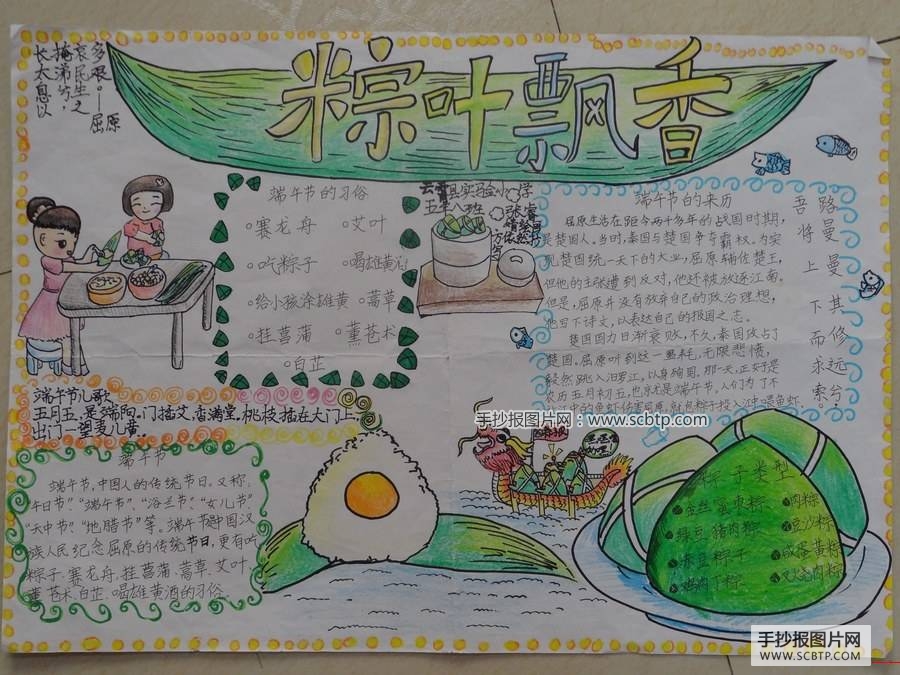 粽叶飘香
长太息以
掩涕兮,
哀民生之
多艰。——屈原
端午节的习俗
赛龙舟
艾叶
吃粽子
喝雄黄酒
给小孩涂雄黄
蒿草
挂菖蒲
薰苍术
白芷
县实验小学
五年八班
端午节的来历
屈原生活在距今两千多年的战国时期,
是楚国人。当时,秦国与楚国争夺霸权。为实
现楚国统一天下的大业,屈原辅佐楚王,
但他的主张遭到反对,他还被放逐江南。
但是,屈原并没有放弃自己的政治理想,
他写下诗文,以表达自己的报国之志。
楚国国力日渐衰败,不久,秦国攻占了
楚国。屈原听到这一噩耗,无限悲愤,
毅然跳入汨罗江,以身殉国。那一天,正好是
农历五月初五,也就是端午节,人们为了不
路曼曼其修远兮
吾将上下而求索
端午节儿歌
五月五,是端阳。门插艾,香满堂,桃枝插在大门上
出门一望麦儿黄。
端午节
端午节,中国人的传统节日。又称:
午日节”“端午节”、“浴兰节”、“女儿节”
“天中节”“地腊节”等。端午节中国汉
族人民纪念屈原的传统节日,更有吃
粽子、赛龙舟、挂菖蒲、蒿草、艾叶
薰苍术、白芷、喝雄黄酒的习俗。
粽子类型
金丝蜜枣粽
肉粽
绿豆猪肉粽
豆沙粽
赤豆粽子
咸蛋黄粽
鸡肉丁粽
叉烧肉粽
手抄报图片网
www.scbtp.com
手抄报图片网
WWW.SCBTP.COM